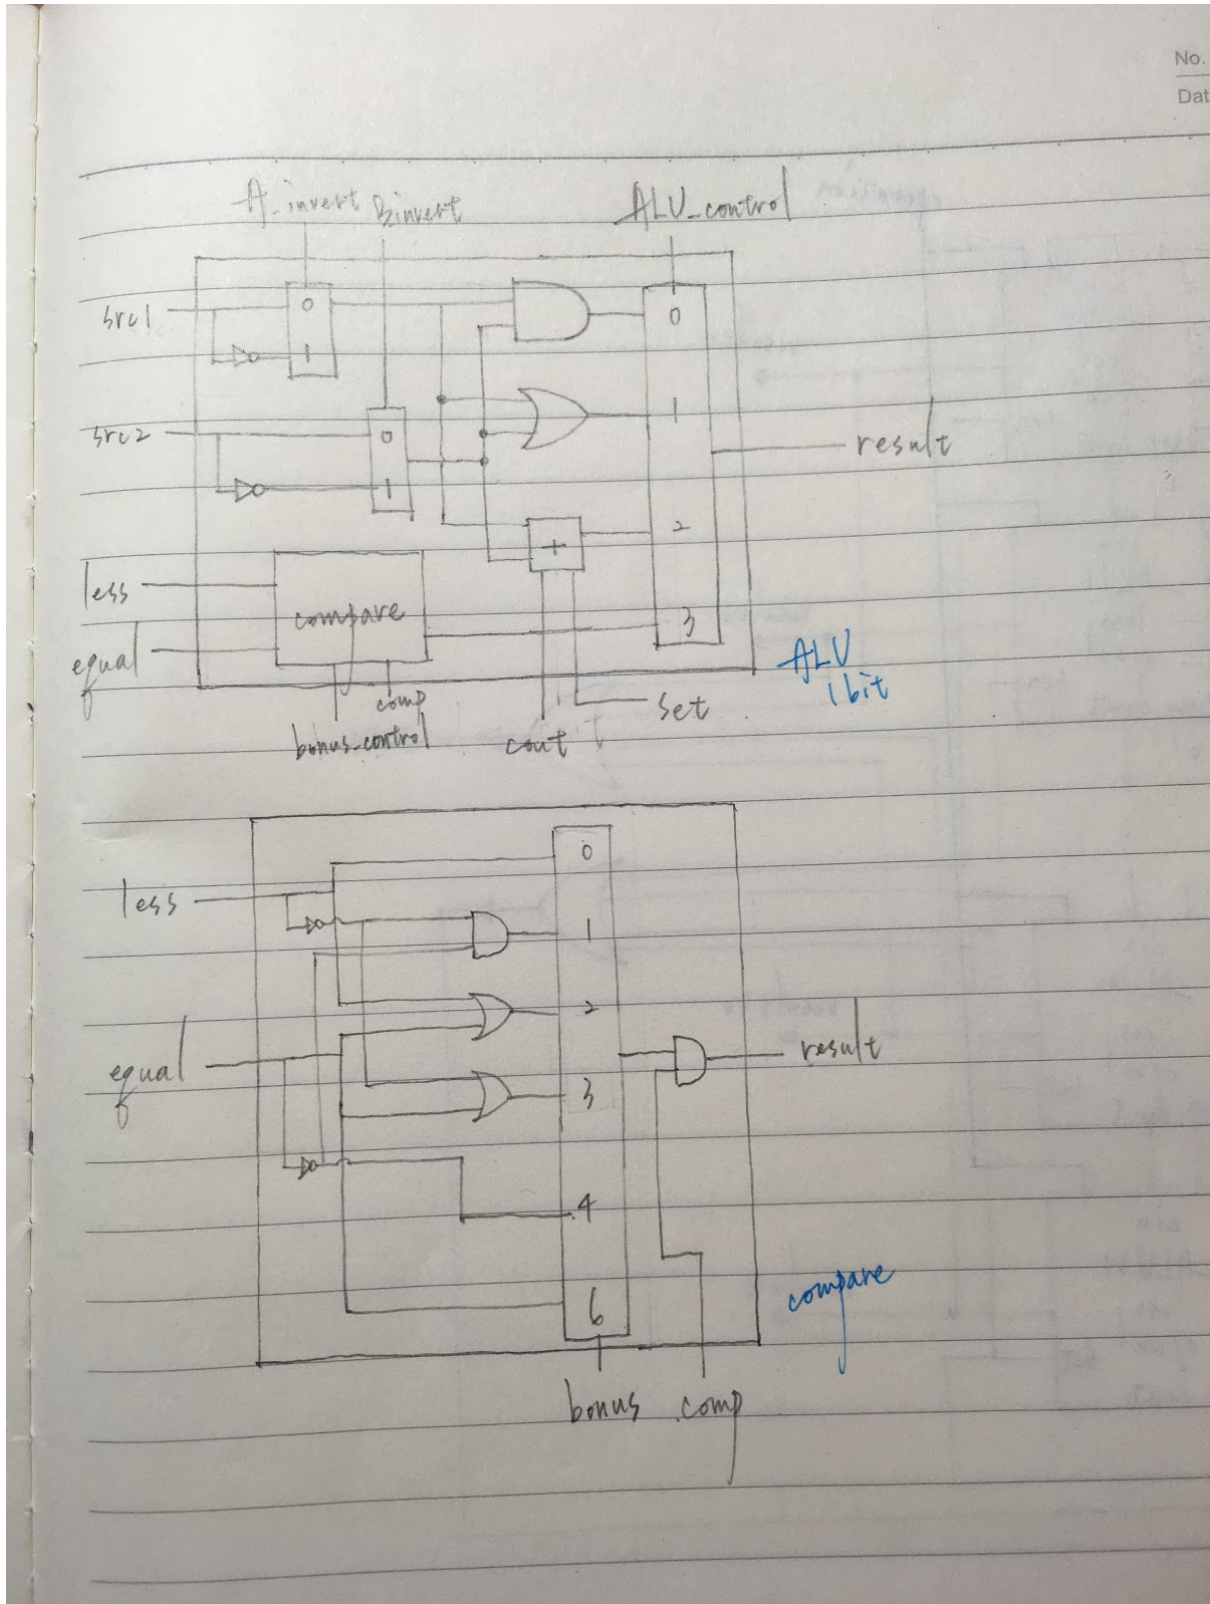 No.
Dat
A_invert Binvert ALU_control
src1
0
1
0
src2
0
1
1
result
2
+
less
compare
3
equal
ALU
1bit
comp
set
bonus_control
cout
0
less
1
2
equal
result
3
4
6
compare
bonus comp